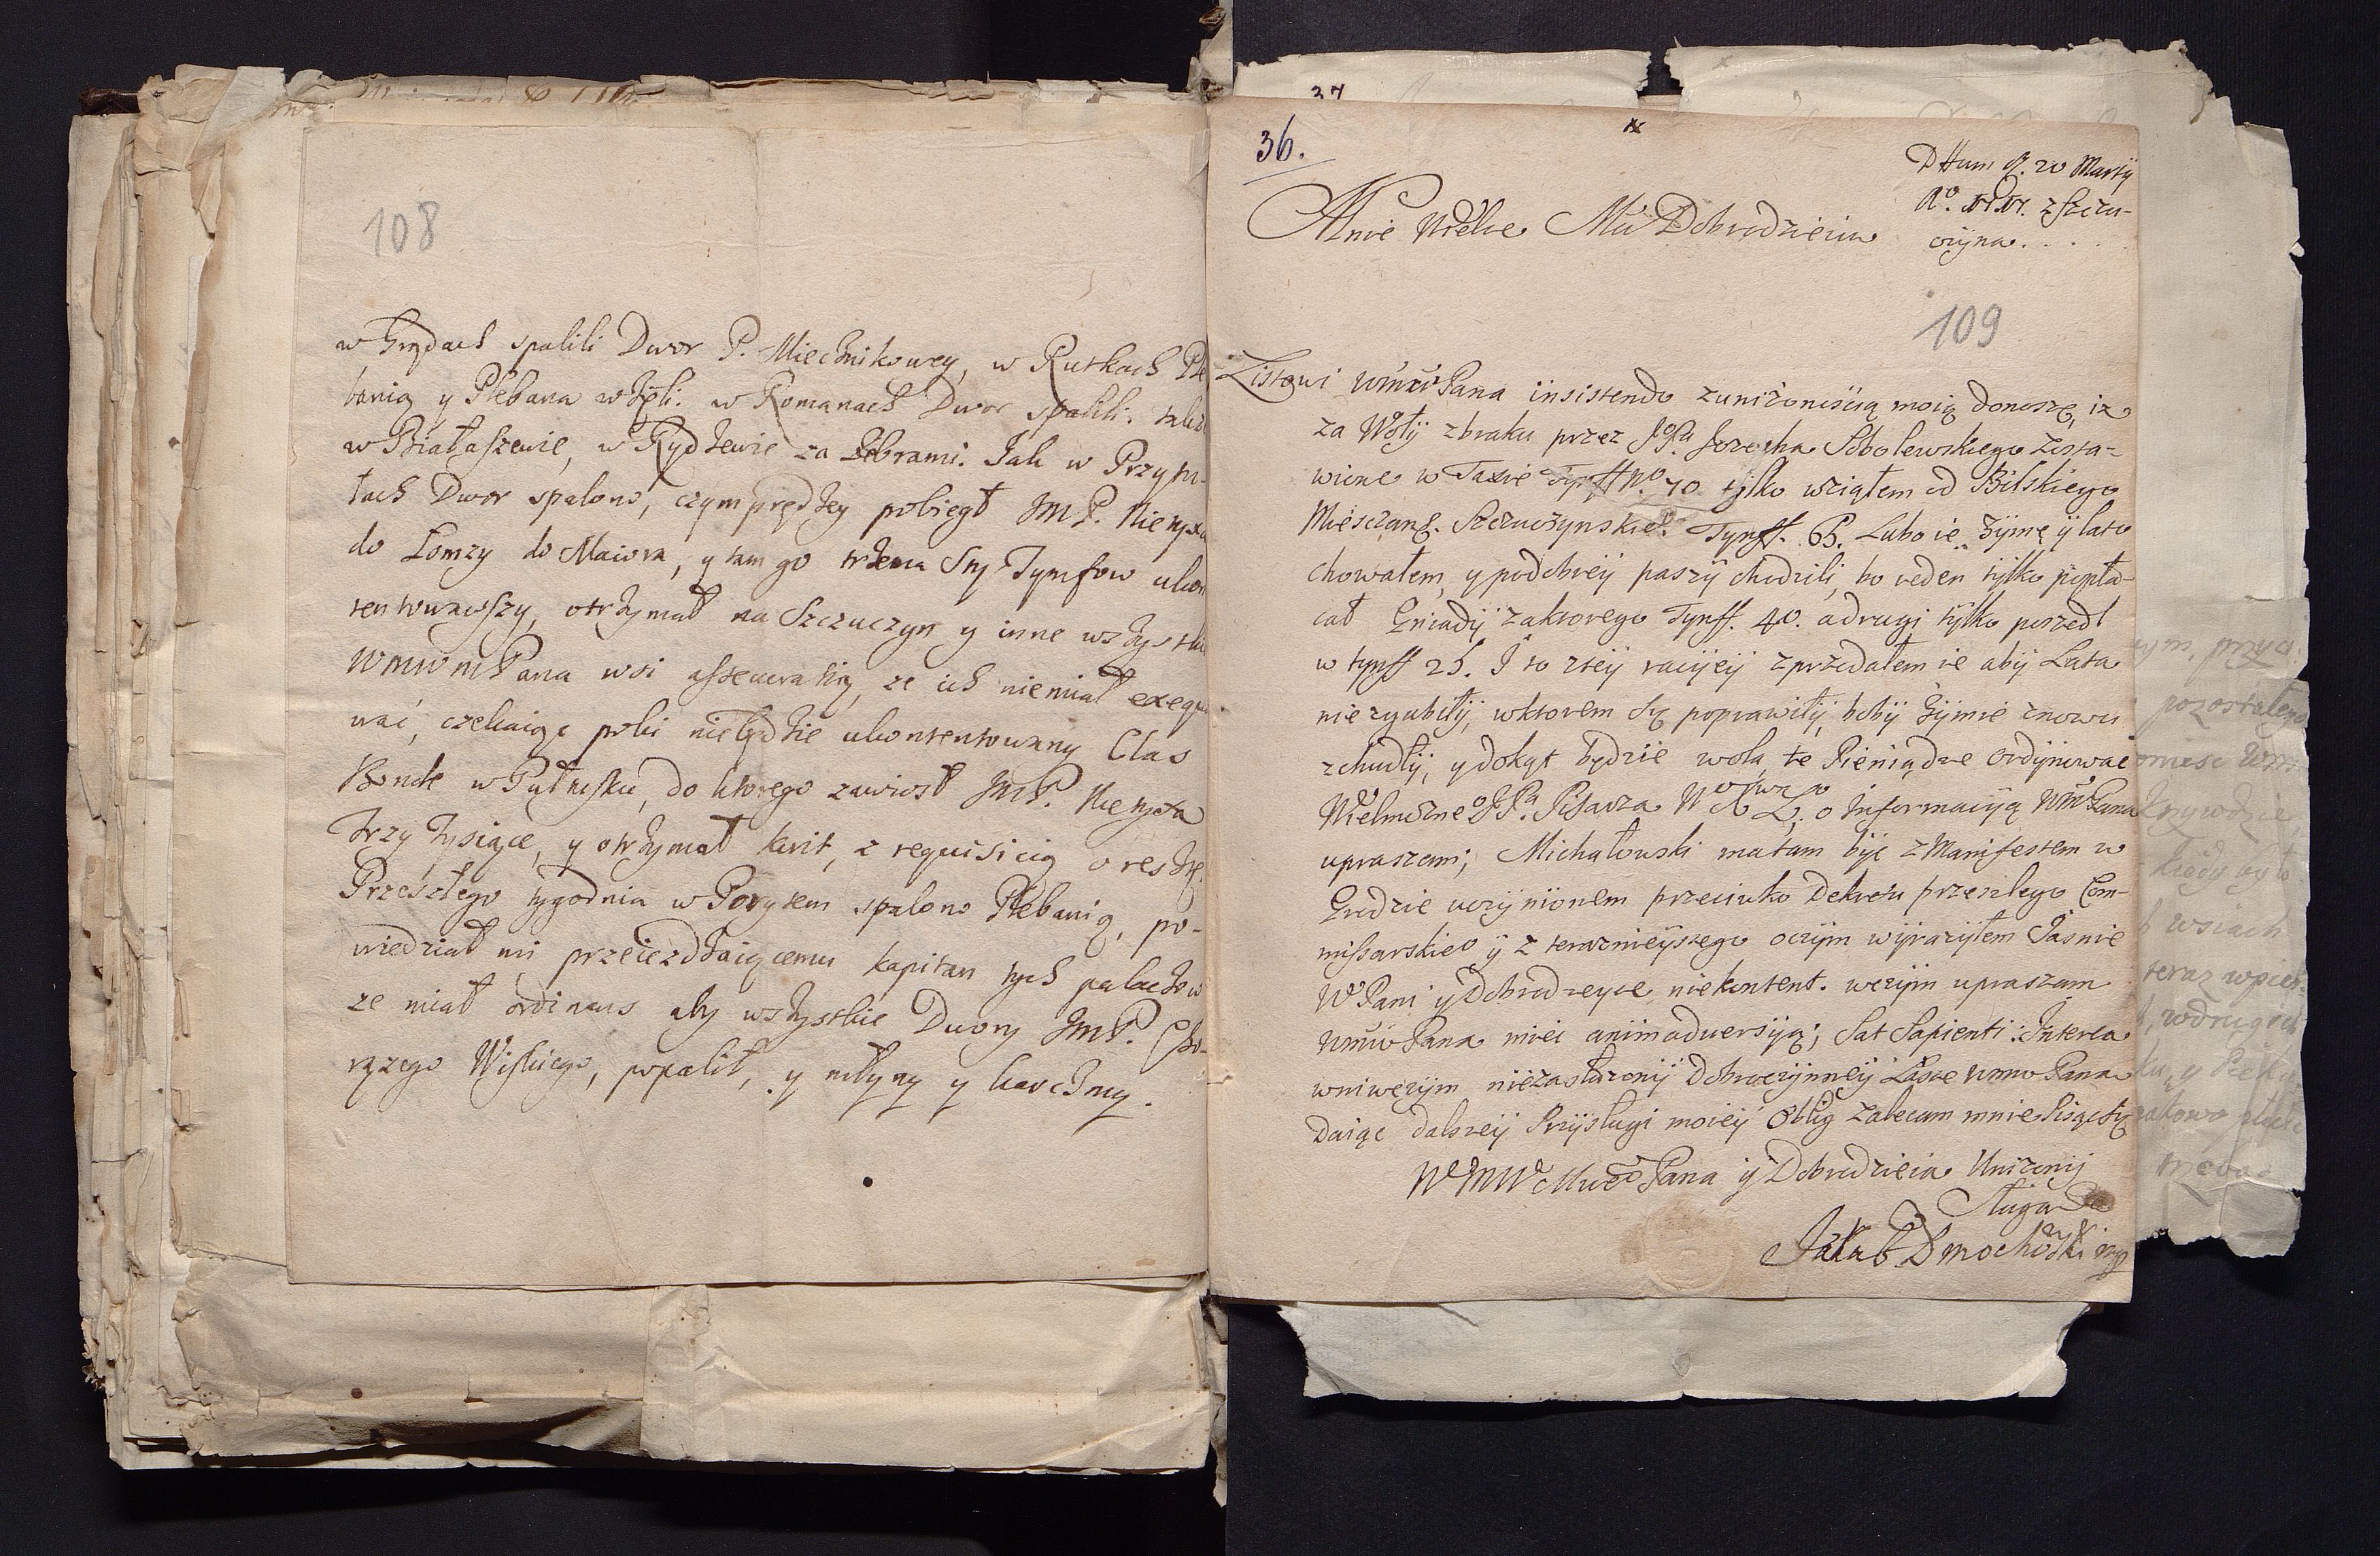 108
w Grądach spalili Dwor P. Miecznikowey, w Rutkach Ple
banią y Plebana wzięli. w Romanach Dwor spalili. także
w Białaszewie, w Rydzewie za Zebrami. Jak w Przytu-
łach Dwor spalono, czym prędzey pobiegł JMP.
do Łomzy do Maiora, y tam go trzema Sty Tymfow ukon
tentowawszy, otrzymał na Szczuczyn y inne wszystkie
WMWMPana wsi assecuratią, ze ich niemiał exequo
wać, czekaiąc poki niebędzie ukontentowany Clas
Bonde w Pułtusku, do ktorego zawiozł JMP.
trzy tysiące, y otrzymał kwit, z requisicią o resztę.
Przeszłego tygodnia w Porytem spalono Plebanią, po-
wiedział mi przeiezdzaiącemu kapitan tych palaczow
ze miał ordinans aby wszystkie Dwory JMP. Cho-
rązego Wiskiego, popalił, y młyny y karczmy.
37
36.
Dttum d. 20 Martij
Aº. zSzczu-
czÿna. . . . .
Mnie Wielce Mci Dobrodzieiu
109
Listowi WMMPana insistendo zunizonością moią donoszę, iz
za Woły zbraku przez Sobolewskiego zosta-
wione w Taxie Tynff Nº. 70 tylko wziąłem od Bilskiego
Miesczan. Szczuczynskieº. Tynff. 65. Lubo ie Zÿmę ÿ lato
chowałem, y podobreÿ paszÿ chodzili, bo ieden tÿlko popła-
cał Gniadÿ zaktorego Tynff. 40. adrugi tylko poszedł
w tynff 25. I to zteÿ raciÿeÿ zprzedałem ie abÿ Lata
niezgubiłÿ, wktorem się poprawiłÿ, bobÿ Zÿmie znowu
zchudłÿ, ydokąt będzie wola te Pieniądze ordÿnować
Wielmozneº JPª. Pisarza o Informacÿą WMPana
upraszam; Michałowski matam bÿc z Manifestem w
Grodzie uczÿnionem przeciwko Dekretu przeszłego Com-
missarskieº ÿ z terazniejszego oczÿm wÿraziłem Jasnie
WPani ÿ Dobrodzeyce niekontent. wczÿm upraszam
WMMPana miei animadwersÿą; Sat Sapienti: Interea
wniwczÿm niezasłuzonÿ dobroczÿnneÿ Łasce WMMPana
daiąc dalszeÿ Przÿsługi moieÿ Oblig zalecam mnie Pisząc się
WMMWMMPana ÿ Dobrodzieia Unizonÿ
Sługa
Jakub Dmochowski mp
pozostałego
kiedy było
wsiach
teraz wpier